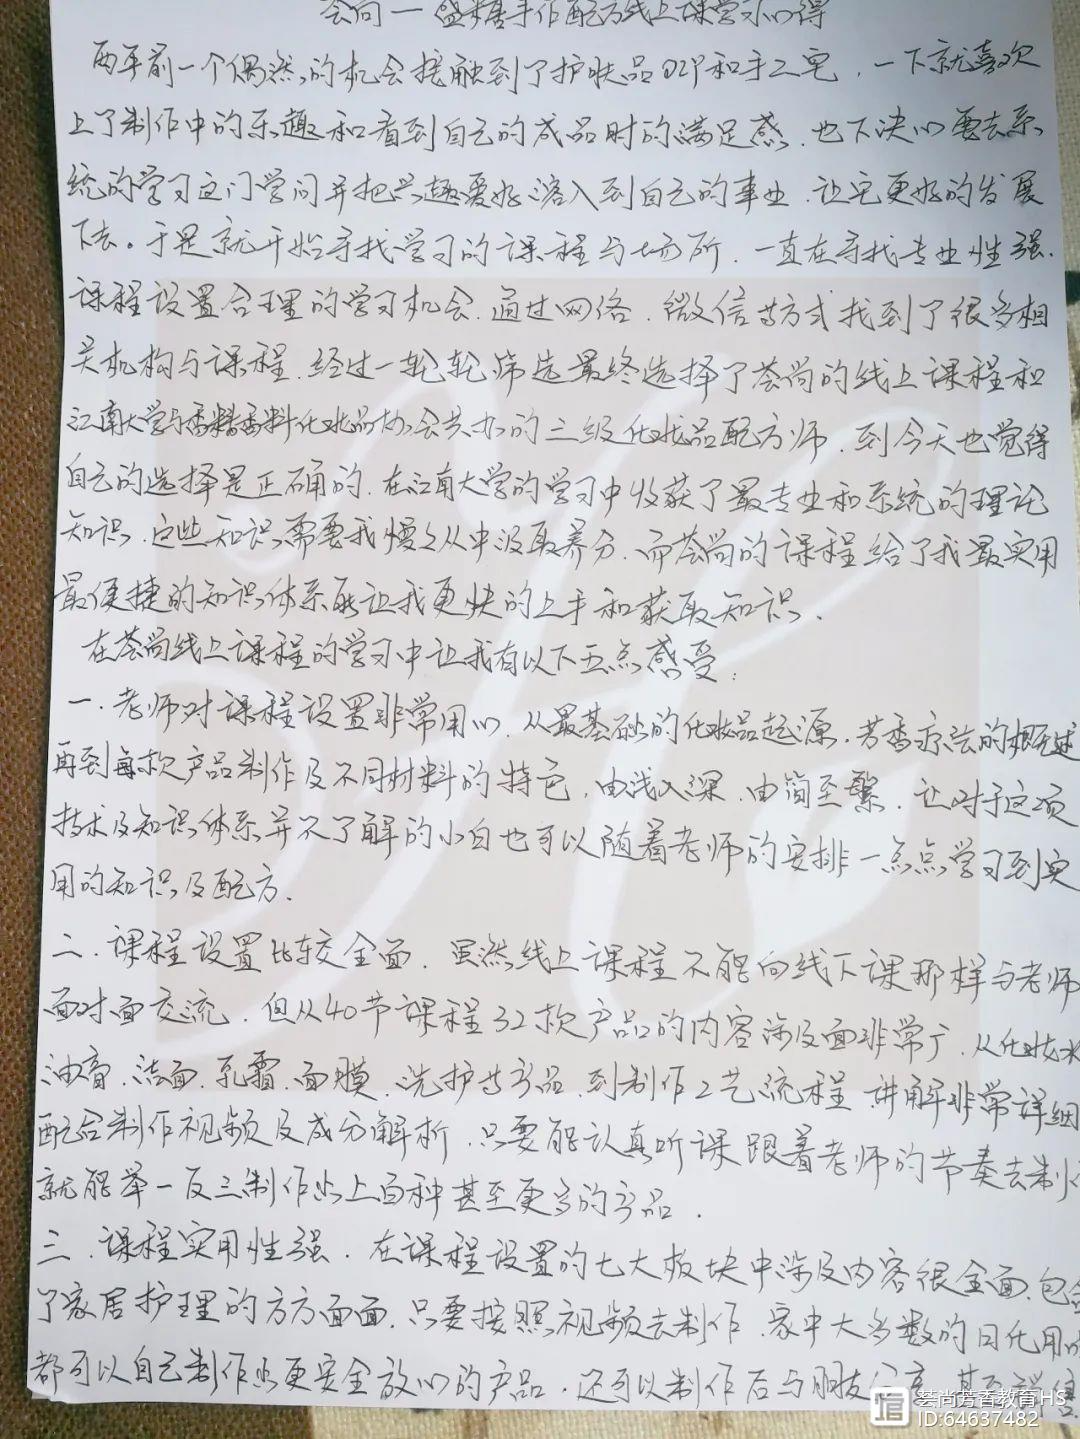 一盛糖手作配方线上课学习心得
两年前一个偶然的机会接触到了护肤品DIY和手工皂，一下就喜欢
上了制作中的乐趣和看到自己的成品时的满足感，也下决心要去系
统的学习这门学问并把兴趣爱好溶入到自己的事业，让它更好的发展
下去。于是就开始寻找学习的课程与场所，一直在寻找专业性强、
课程设置合理的学习机会，通过网络、微信等方式找到了很多相
关机构与课程，经过一轮轮筛选最终选择了荟尚的线上课程和
江南大学与香料香料化妆品协会共办的三级化妆品配方师，到今天也觉得
自己的选择是正确的，在江南大学的学习中收获了最专业和系统的理论
知识，这些知识需要我慢々从中汲取养分，而荟尚的课程给了我最实用
最便捷的知识体系能让我更快的上手和获取知识，
在荟尚线上课程的学习中让我有以下五点感受：
一、老师对课程设置非常用心，从最基础的化妆品起源，芳香疗法的概述
再到每款产品制作及不同材料的特色，由浅入深，由简至繁，让对于这项
技术及知识体系并不了解的小白也可以随着老师的安排一点点学习到实
用的知识及配方。
二、课程设置比较全面，虽然线上课程不能向线下课那样与老师
面对面交流，但从40节课程32款产品的内容涉及面非常广，从化妆水
油膏、洁面、乳霜、面膜、洗护等产品，到制作工艺流程讲解非常详细
配合制作视频及成分解析，只要能认真听课跟着老师的节奏去制
就能举一反三制作出上百种甚至更多的产品。
三、课程实用性强，在课程设置的七大板块中涉及内容很全面，包
了家居护理的方方面面，只要按照视频去制作，家中大多数的日化用
都可以自己制作出更安全放心的产品，还可以制作后与朋友分享，甚至
荟尚芳香教育HS
ID:64637482